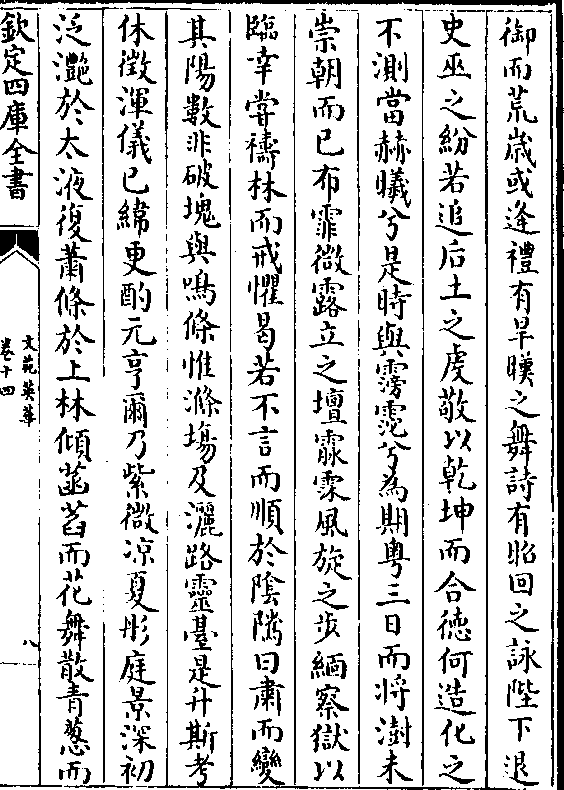 御而荒歲或逢禮有旱暵之舞詩有昭回之詠陛下退
史巫之紛若追后土之虔敬以乾坤而合德何造化之
不測當赫曦兮是時與霶霮兮為期粤三日而將澍未
崇朝而已布霏微露立之壇霢霂風旋之步緬察獄以
臨幸嘗禱林而戒懼曷若不言而順於陰隲曰肅而變
其陽數非破塊與鳴條惟滌場及灑路靈臺是升斯考
休徵渾儀已緯更酌元亨爾乃紫微凉夏彤庭景深初
泛灔於太液復蕭條於上林傾菡萏而花舞散青葱而
欽定四庫全書
文苑英華
卷十四
八